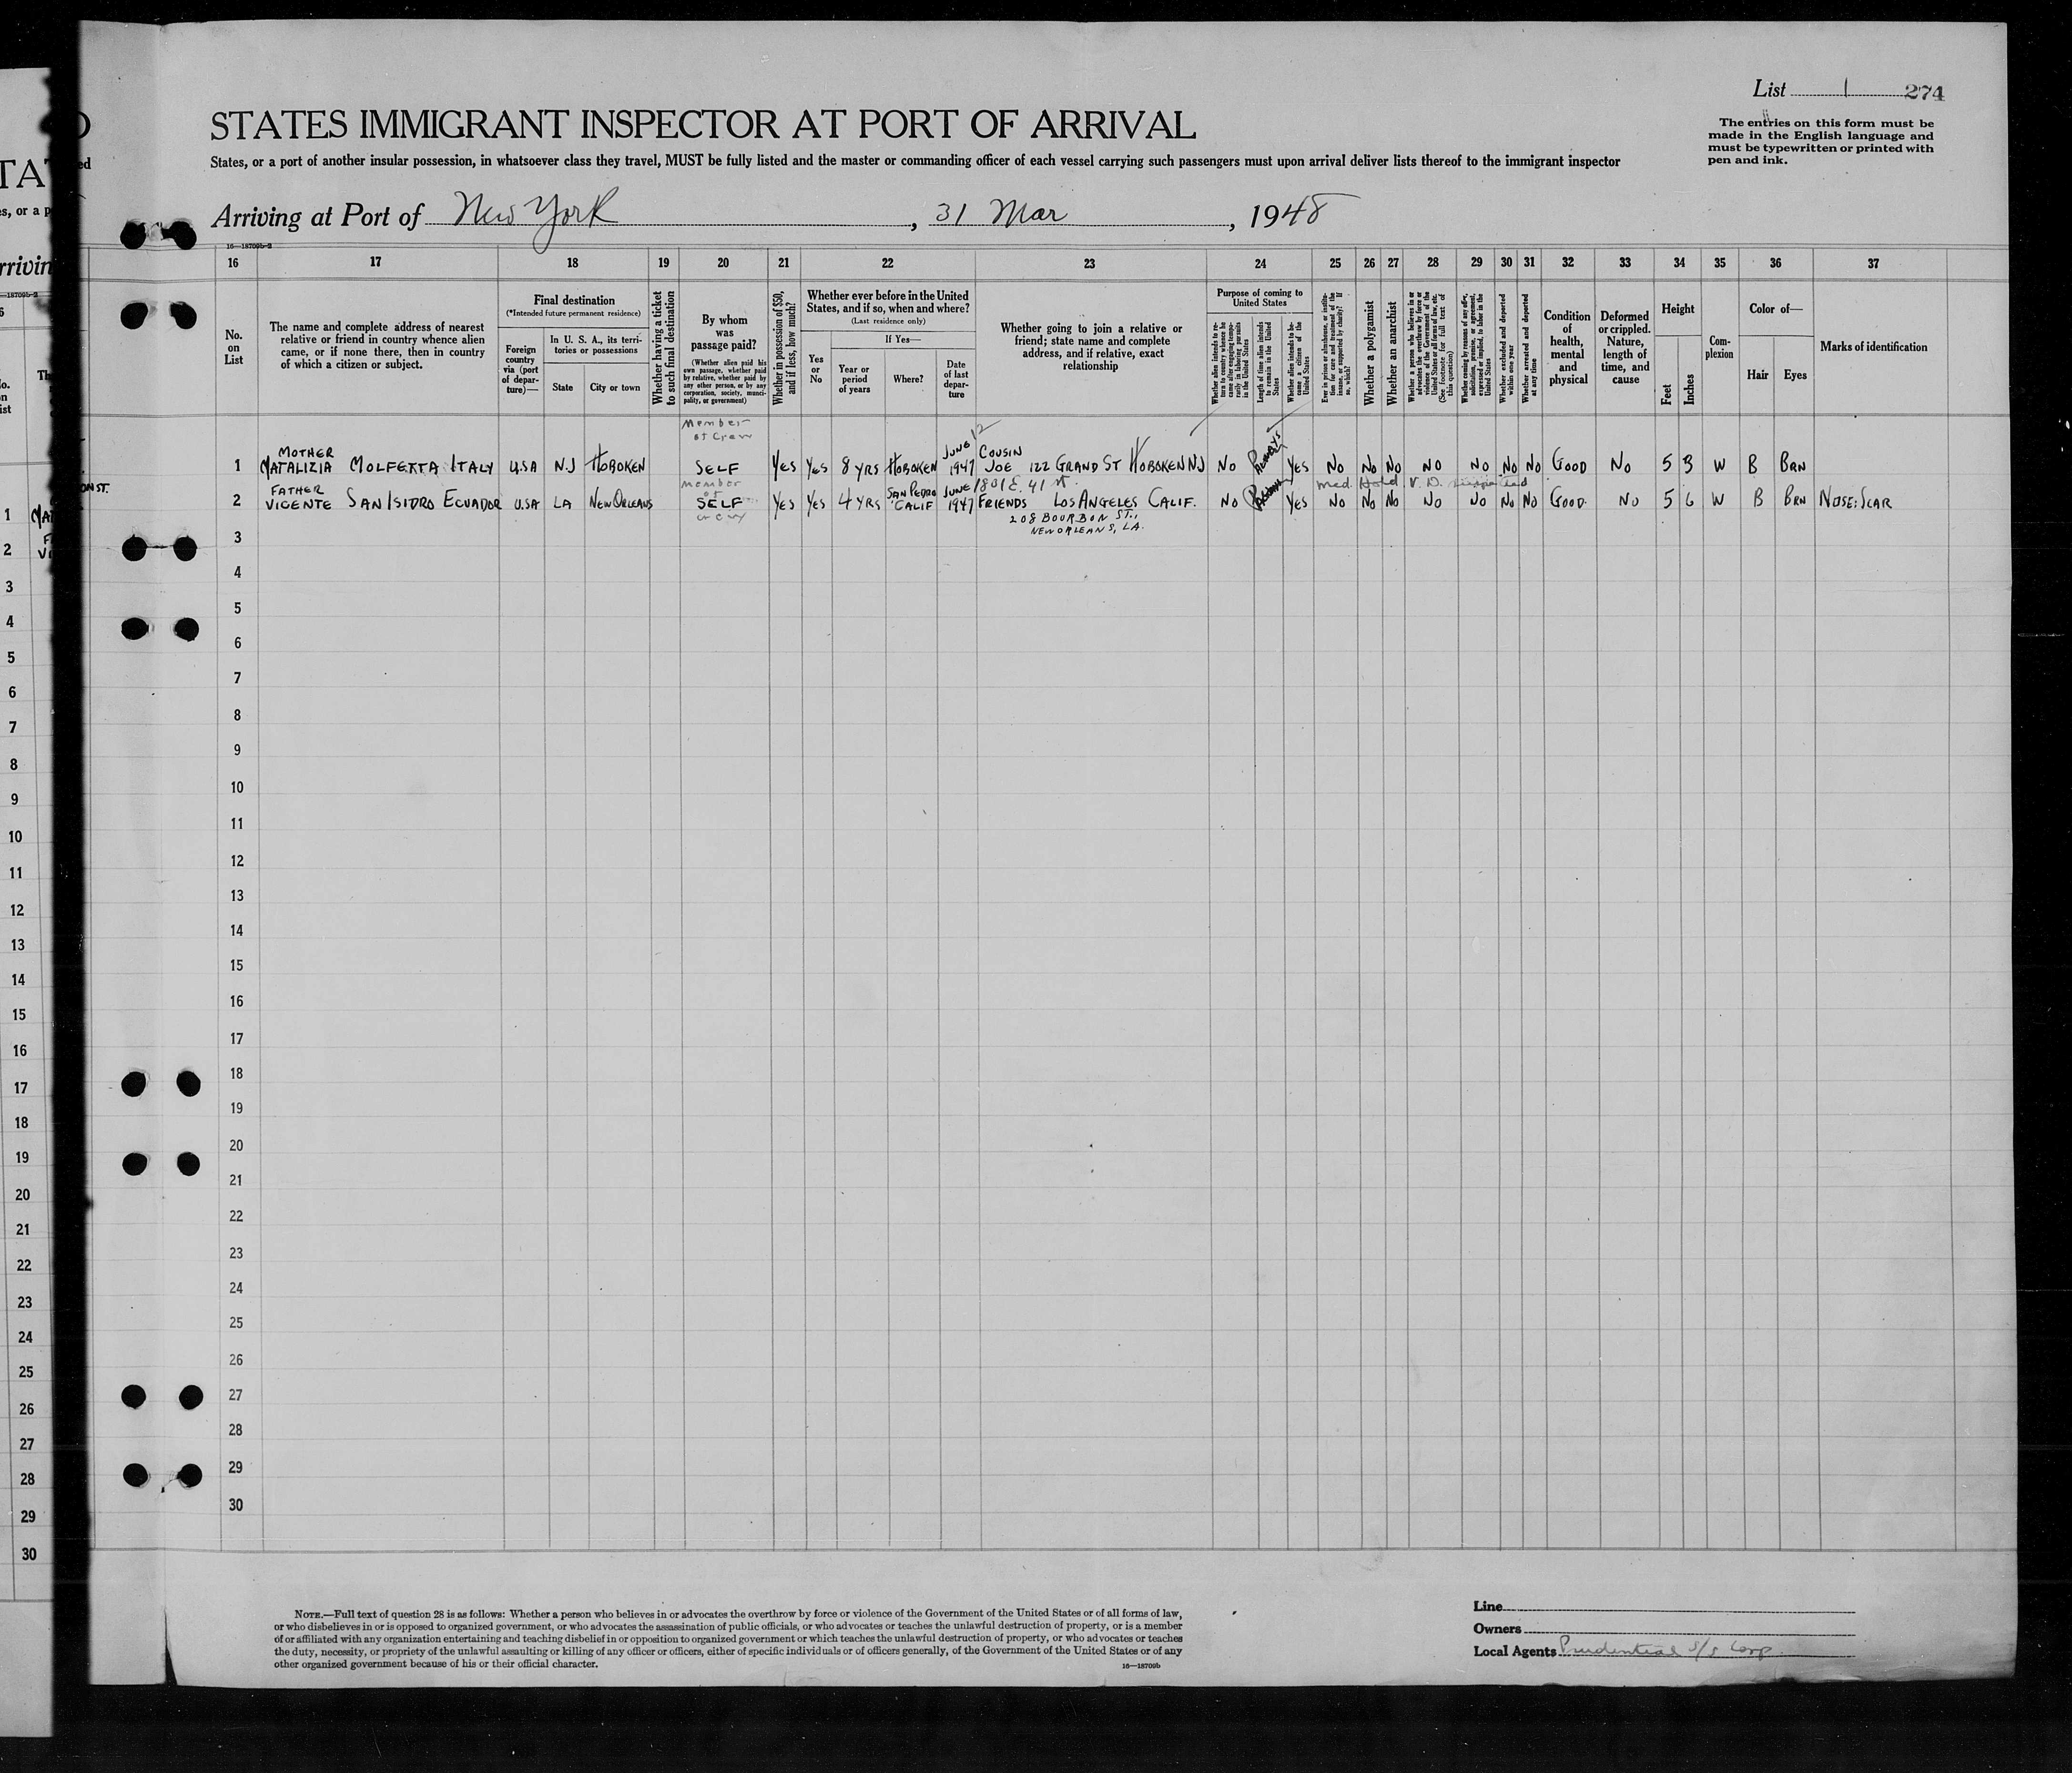 List 1 274
STATES IMMIGRANT INSPECTOR AT PORT OF ARRIVAL
The entries on this form must be
made in the English language and
must be typewritten or printed with
pen and ink.
States, or a port of another insular possession, in whatsoever class they travel, MUST be fully listed and the master or commanding officer of each vessel carrying such passengers must upon arrival deliver lists thereof to the immigrant inspector
Arriving at Port of New York, 31 Mar, 1948
16—18709b-2
16 17 18 19 20 21 22 23 24 25 26 27 28 29 30 31 32 33 34 35 36 37
No. on List
The name and complete address of nearest
relative or friend in country whence alien
came, or if none there, then in country
of which a citizen or subject.
Final destination
(*Intended future permanent residence)
Foreign country via (port of departure)—
In U. S. A., its territories or possessions
State
City or town
Whether having a ticket to such final destination
By whom was passage paid?
(Whether alien paid his own passage, whether paid by relative, whether paid by any other person, or by any corporation, society, municipality, or government)
Whether in possession of $50, and if less, how much?
Whether ever before in the United States, and if so, when and where?
(Last residence only)
Yes or No
If Yes—
Year or period of years
Where?
Date of last departure
Whether going to join a relative or
friend; state name and complete
address, and if relative, exact
relationship
Purpose of coming to United States
Whether alien intends to return to country whence he came after engaging temporarily in laboring pursuits in the United States
Length of time alien intends to remain in the United States
Whether alien intends to become a citizen of the United States
Ever in prison or almshouse, or institution for care and treatment of the insane, or supported by charity? If so, which?
Whether a polygamist
Whether an anarchist
Whether a person who believes in or advocates the overthrow by force or violence of the Government of the United States or all forms of law, etc. (See footnote for full text of this question)
Whether coming by reasons of any offer, solicitation, promise, or agreement, expressed or implied, to labor in the United States
Whether excluded and deported within one year
Whether arrested and deported at any time
Condition of health, mental and physical
Deformed or crippled. Nature, length of time, and cause
Height
Feet
Inches
Complexion
Color of—
Hair
Eyes
Marks of identification
Member of Crew
1 MOTHER NATALIZIA MOLFETTA ITALY U.S.A N.J HOBOKEN SELF YES YES 8 YRS HOBOKEN JUNE 12 1947 COUSIN JOE 122 GRAND ST HOBOKEN NJ NO YES NO NO NO NO NO NO NO GOOD NO 5 3 W B BRN
member of crew
1801 E. 41 st.
Med. Hold V.D. suspected
2 FATHER VICENTE SAN ISIDRO ECUADOR U.S.A LA NEW ORLEANS SELF YES YES 4 YRS SAN PEDRO CALIF JUNE 1947 FRIENDS LOS ANGELES CALIF. NO YES NO NO NO NO NO NO NO GOOD NO 5 6 W B BRN NOSE: SCAR
208 BOURBON ST.,
NEW ORLEANS, LA.
3
4
5
6
7
8
9
10
11
12
13
14
15
16
17
18
19
20
21
22
23
24
25
26
27
28
29
30
NOTE.—Full text of question 28 is as follows: Whether a person who believes in or advocates the overthrow by force or violence of the Government of the United States or of all forms of law,
or who disbelieves in or is opposed to organized government, or who advocates the assassination of public officials, or who advocates or teaches the unlawful destruction of property, or is a member
of or affiliated with any organization entertaining and teaching disbelief in or opposition to organized government or which teaches the unlawful destruction of property, or who advocates or teaches
the duty, necessity, or propriety of the unlawful assaulting or killing of any officer or officers, either of specific individuals or of officers generally, of the Government of the United States or of any
other organized government because of his or their official character.
16—18709b
Line
Owners
Local Agents Prudential S/S Corp